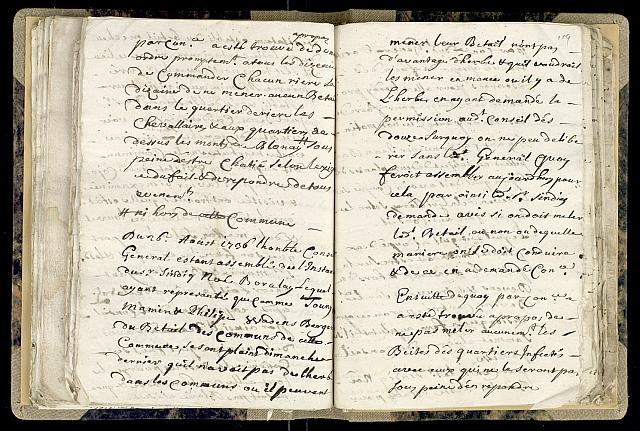 apropos
par Con.e a a esté trouvé de donner
ordre promptem.t a tous les dizeniers
de Commander Chacun riere sa
dizaine de ne mener aucun Betail
dans le quartier deriere les
Chevallaire & aux quartiers de
dessus les monts de Blonay sous
peine destre Chatié selon lexig
du fait & de repondre de tous
evenem.ts
# ni hors de Commune
Du 16.e Aoust 1736 lhonble Conseil
General estant assemblé de l'Instance
du sr Sindiq Nol Lequel
ayant representé que Comme
& Philippe Bergers
du Betail des Communs de cette
Commune, se sont plaint dimanche
dernier quil ny avoit pas de lherbe
dans les Communs ou il peuvent
119
mener leur Betail nont pas
d'avantage d'herbe & quil voudroit
les mener en ou il y a de
L'herbe en ayant demandé la
permission aud.t Conseil des
douze Surquoy on ne peu delibe
rer sans le d.t General Quoy
feroit assembler aujourdhuy pour
cela par ainsi led.t Sr. Sindiq
demande avis si on doit meler
led.t Betail ou non ou de quelle
maniere on se doit Conduire
& de ce en a demandé Con.e
Ensuitte dequoy par Con.e a
a esté trouvé a propos de
ne pas meler aucunem.t les
Beites des quartiers Infects
avec ceux qui ne le seront pas
sous peine den repondre